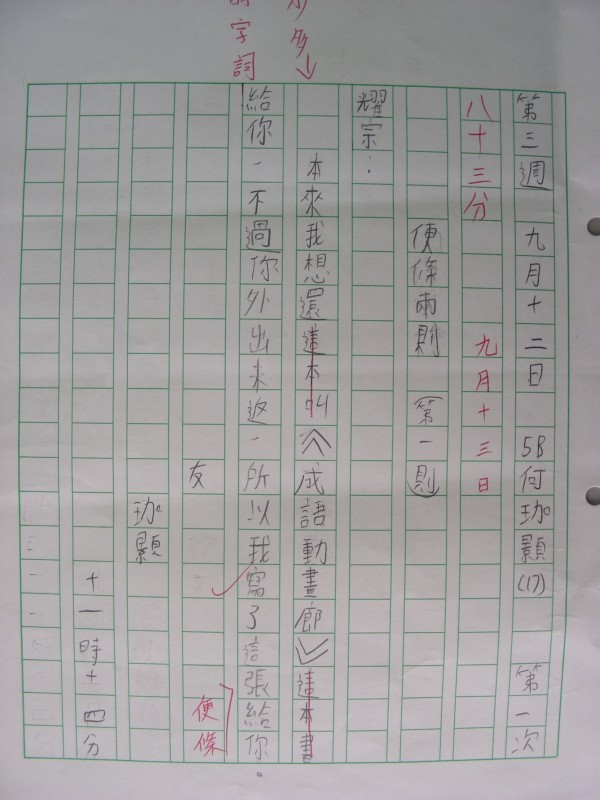 少多
字詞
第三週 九月十二日 5B何珈顥(17) 第一次
八十三分 九月十三日
便條兩則 (第一則)
耀宗：
本來我想還這本叫《成語動畫廊》這本書
給你，不過你外出未返，所以我寫了這張給你。
便條
友
珈顥
十一時十四分